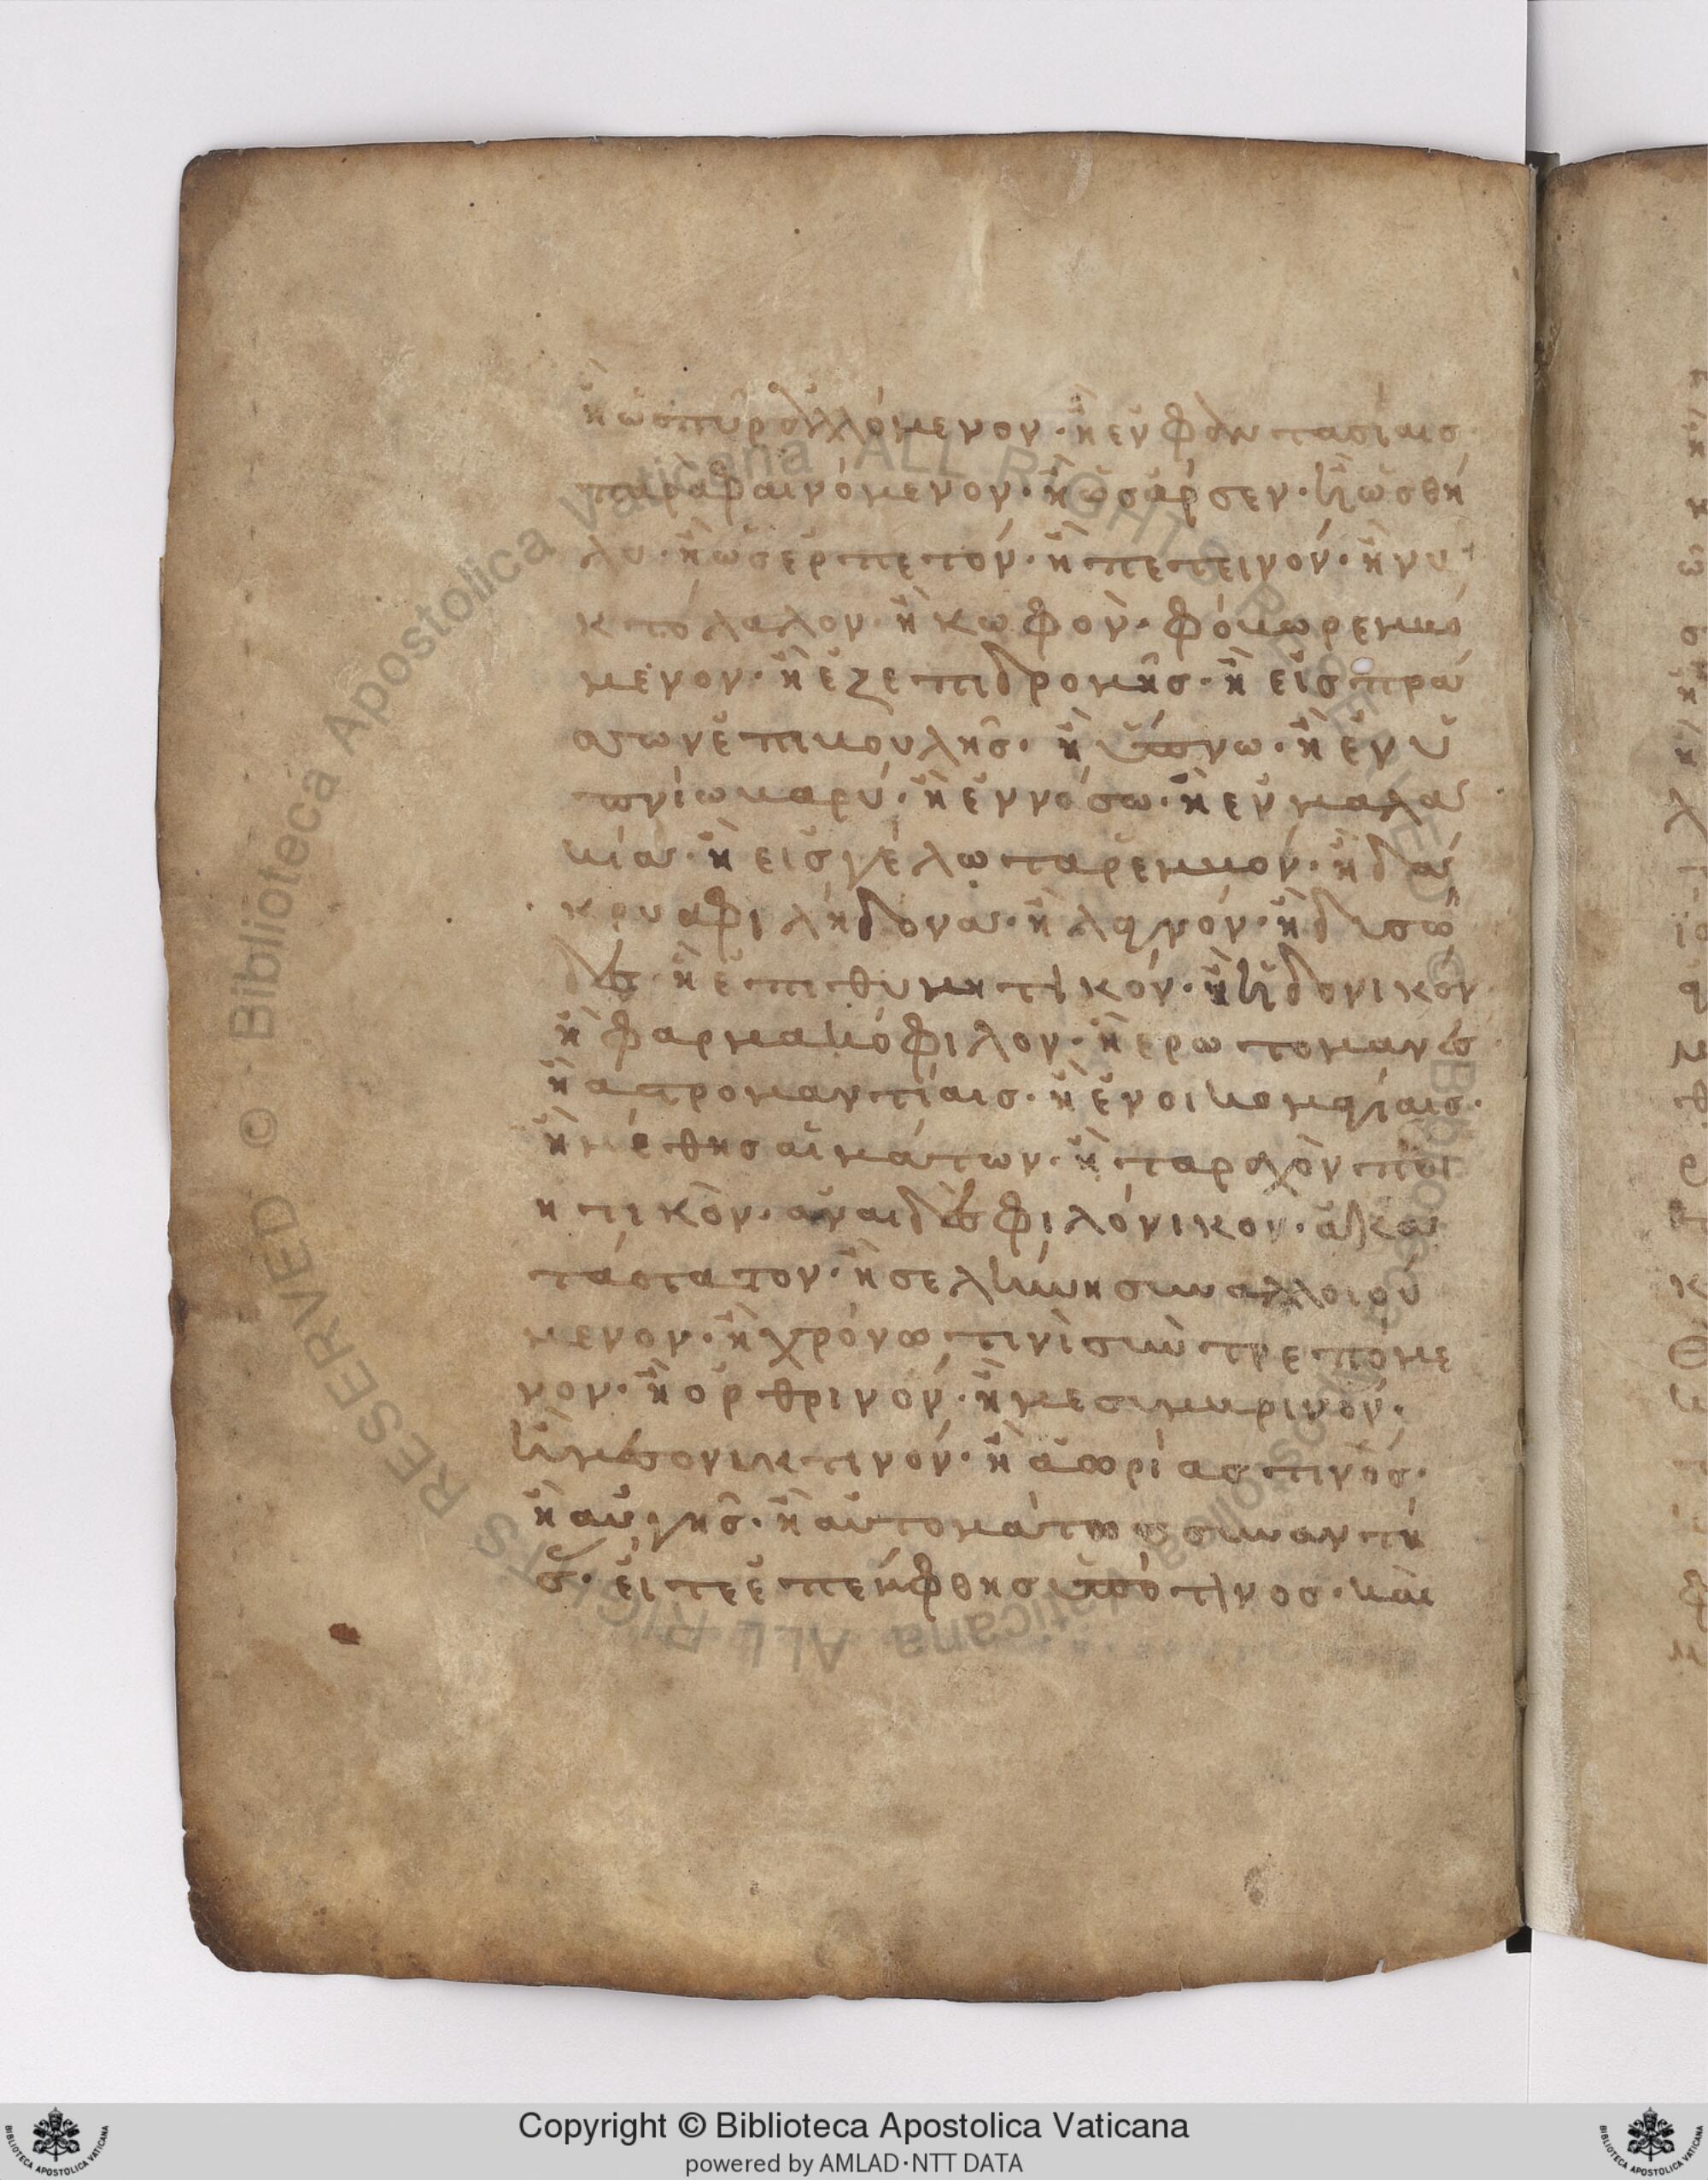 ἢ ὡς πῦρ αὐλόμενον· ἢ ἐν φαντασίαις
παραφαινόμενον· ἢ ὡς ἄρσεν· ἢ ὡς θῆ
λυ· ἢ ὡς ἑρπετόν· ἢ πετεινόν· ἢ νυ
κτόλαλον· ἢ κωφὸν· φόβω ρεμβό
μενον· ἢ ἐξ ἐπιδρομῆς· ἢ εἰσπρά
ἀπὼν ἐπιβουλῆς· ἢ ὕπνω· ἢ ἐνυ
πνίω βαρύ· ἢ ἐν νόσω· ἢ ἐν μαλα
κία· ἢ εἰς γέλωτα ρεμβόν· ἢ δά
κρυα φιλήδονα· ἢ λάγνον· ἢ δυσῶ
δες· ἢ ἐπιθυμητικόν· ἢ ἡδονικόν
ἢ φαρμακόφιλον· ἢ ἐρωτομανές
ἢ ἀστρομαντίαις· ἢ ἐν οἰκομαγίαις·
ἢ μέθης αἱμάτων· ἢ ταραχὸν ποι
ητικὸν· ἀναιδὲς φιλόνικον· ἀκα
τάστατον· ἢ σελήνη συναλλοιού
μενον· ἢ χρόνω τινὶ συντρεπόμε
νον· ἢ ὀρθρινόν· ἢ μεσημβρινόν·
ἢ μεσονυκτινόν· ἢ ἀωρίας τινός·
ἢ αὐγῆς· ἢ αὐτομάτως συναντή
σας· εἴτε ἐπέμφθης ὑπό τινος· καὶ
Copyright © Biblioteca Apostolica Vaticana
powered by AMLAD·NTT DATA